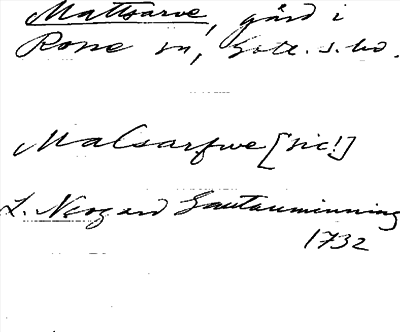 Mattsarve, gård i
Rone sn, Gotl. s. hd.
Malsarfwe [sic!]
L. Neogard Gautauminning
1732